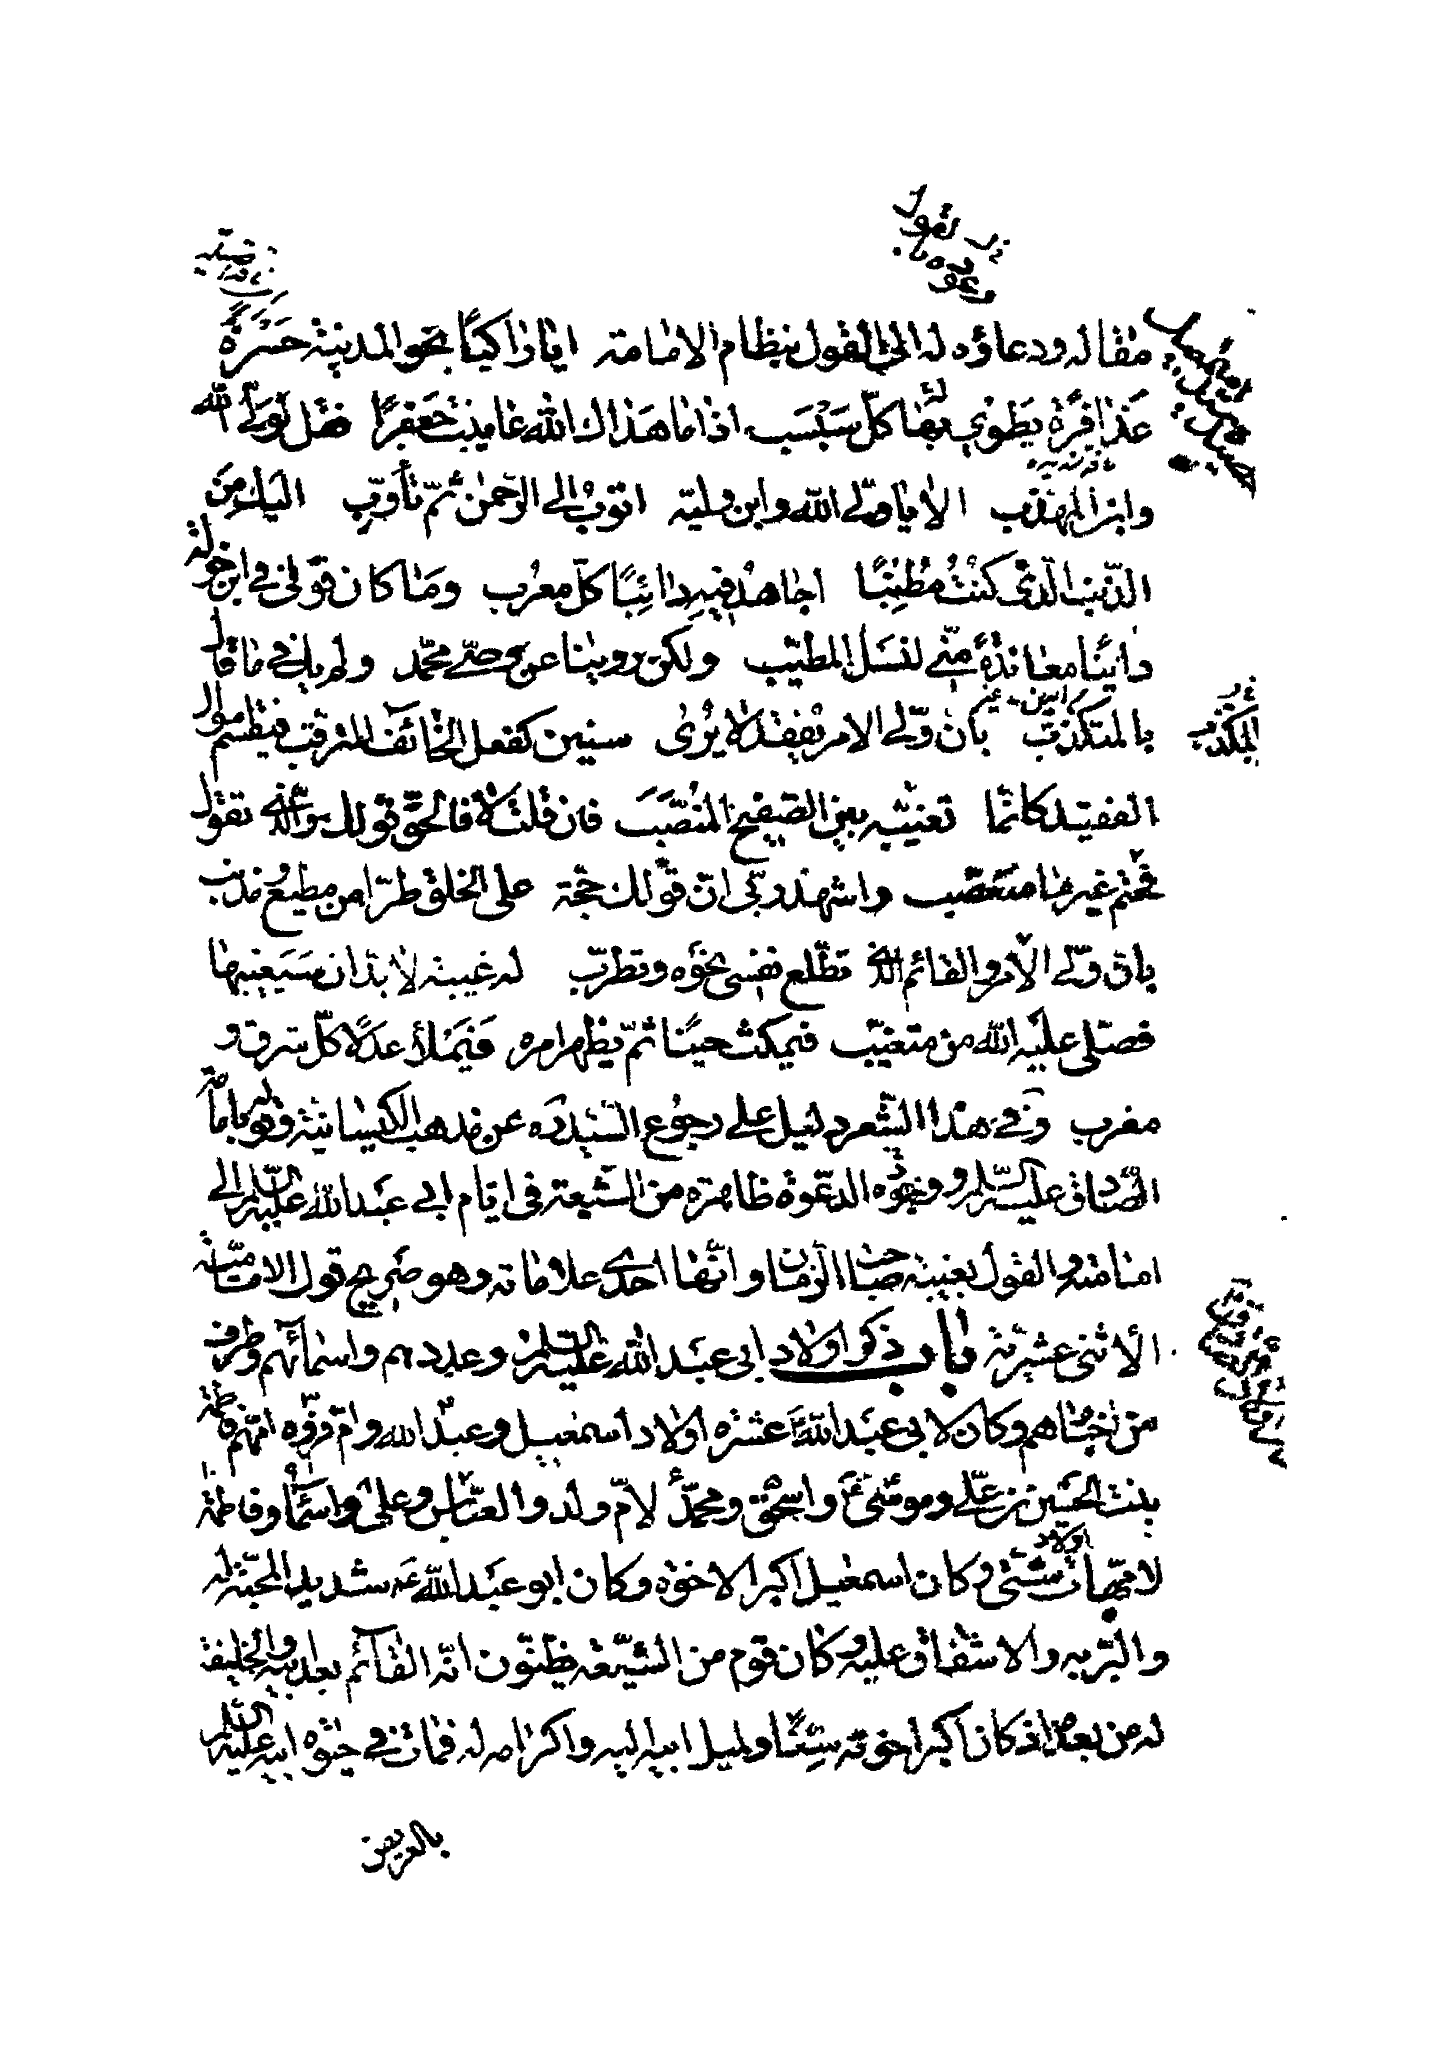 مقاله ودعاؤه له الى القول بنظام الامامة ايا راكبًا نحو المدينة جسرة
عذافرة يطوى بها كلّ سبسب اذا ما هداك الله عاينت جعفرًا فقل لوليّ الله
وابن المهذّب الا يا وليّ الله وابن وليّه اتوب الى الرّحمن ثمّ تأوّب اليك من
الذّنب الّذى كنت مطنبًا اجاهد فيه دائبًا كلّ معرب وما كان قولى في ابن خولة
دائنًا معاندة منّي لنسل المطيّب ولكن روينا عن وصيّ محمّد ولم يك في ما قال
بالمتكذّب بان وليّ الامر يفقد لا يرى سنين كفعل الخائف المترقّب فيقسم موال
الفقيد كانّما تغيّبه بين الصّفيح المنصّب فان قلت لا فالحقّ قولك والّذى تقول
فحتم غير ما متعصّب واشهد ربّى انّ قولك حجّة على الخلق طرّا من مطيع ومذنب
بانّ وليّ الامر والقائم الّذى تطّلع نفسى نحوه وتطرّب له غيبة لا بدّ ان سيغيبها
فصلّى عليه الله من متغيّب فيمكث حينًا ثمّ يظهر امره فيملأ عدلًا كلّ شرق و
مغرب وفي هذا الشّعر دليل على رجوع السّيّد ره عن مذهب الكيسانيّة وقوله بامامة
الصّادق عليه السّلم ووجوه الدعوة ظاهرة من الشّيعة في ايّام ابي عبد الله عليه السّلم الى
امامته والقول بغيبة صاحب الزّمان وانّها احدى علاماته وهو صريح قول الاماميّة
الاثنى عشريّة باب ذكر اولاد ابى عبد الله عليه السّلم وعددهم واسمائهم وطرف
من اخبارهم وكان لابى عبد الله ع عشرة اولاد اسمعيل وعبد الله وامّ فروه امّهم فاطمة
بنت الحسين بن عليّ وموسى ع واسحق ومحمّد لامّ ولد والعبّاس وعلىّ واسماء وفاطمة
لامّهات اولاد شتّى وكان اسمعيل اكبر الاخوة وكان ابو عبد الله ع شديد المحبّة له
والبرّ به والاشفاق عليه وكان قوم من الشّيعة يظنّون انّه القائم بعد ابيه والخليفة
له من بعده اذ كان اكبر اخوته سنًّا ولميل ابيه اليه واكرامه له فمات في حيوة ابيه عليه السّلم
بالعريض